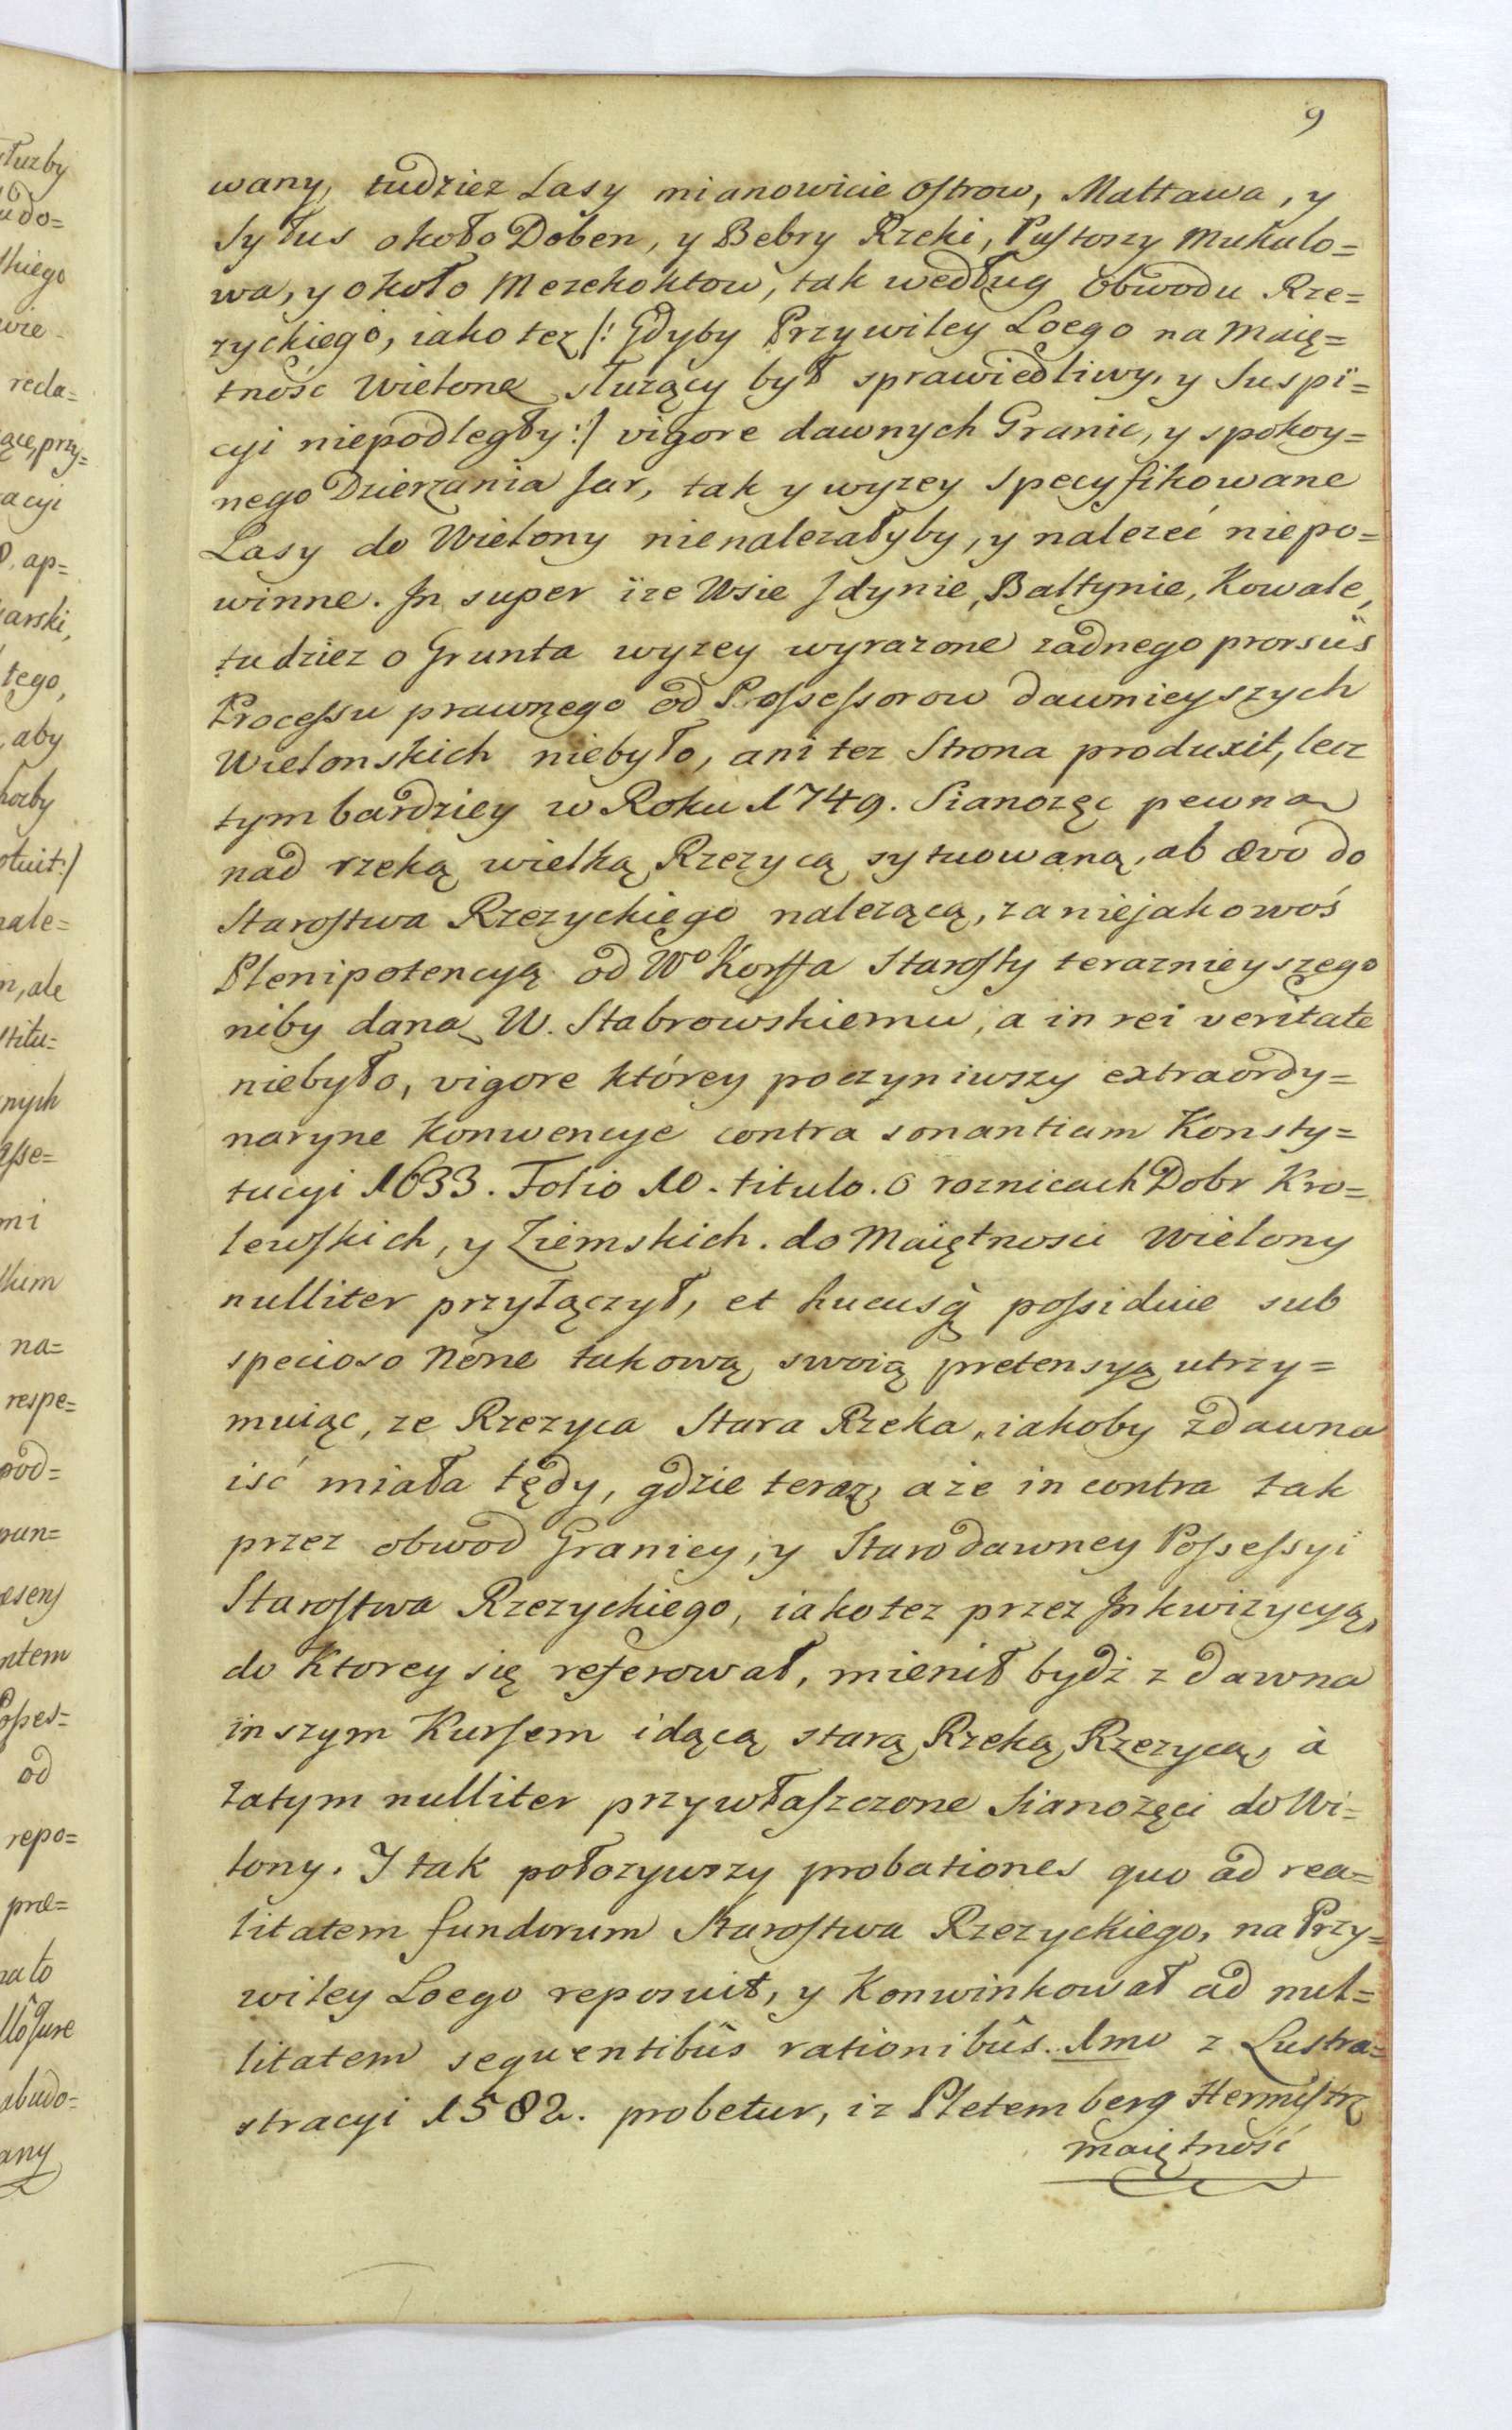 9
wany, tudziez Lasy mianowicie Ostrow, Maltawa, y
Sytus około Doben, y Bebry Rzeki, Pustoszy Mukulo=
wa, y około Mezchoktow, tak według Obwodu Rze=
zyckiego, iako tez /: Gdyby Przywiley Loego na Maię=
tnośc Wielonę służący był sprawiedliwy, y Suspi=
cyi niepodległy :/ vigore dawnych Granic, y spokoy=
nego Dzierzania Jur, tak y wyzey specyfikowane
Lasy do Wielony nienalezałyby, y nalezeć niepo=
winne. In super ize Wsie Idynie, Baltynie, Kowale,
tudziez o Grunta wyzey wyrazone zadnego prorsus
Processu prawnego od Possessorow dawnieyszych
Wielonskich niebyło, ani tez Strona produxit, lecz
tym bardziey w Roku 1749. Sianozęc pewną
nad rzeką wielką Rzezycą sytuowaną, ab ævo do
Starostwa Rzezyckiego nalezącą, za niejakowoś
Plenipotencyą od Wo Korffa Starosty teraznieyszego
niby daną W. Stabrowskiemu, a in rei veritate
niebyło, vigore którey poczyniwszy extraordy=
naryne Konwencye contra sonantiam Konsty=
tucyi 1633. Folio 10. titulo. O roznicach Dobr Kro=
lewskich, y Ziemskich. do Maiętnosci Wielony
nulliter przyłączył, et hucusq possiduie sub
specioso Nene takową swoią pretensyą utrzy=
muiąc, ze Rzezyca Stara Rzeka, iakoby zdawna
iść miała tędy, gdzie teraz, a ze in contra tak
przez obwod Granicy, y Starodawney Possessyi
Starostwa Rzezyckiego, iakotez przez Inkwizycyą,
do Ktorey się referował, mienił bydź z dawna
inszym Kursem idącą starą Rzeką Rzezycą, à
zatym nulliter przywłaszczone Sianożęci do Wi=
lony. I tak połozywszy probationes quo ad rea=
litatem fundorum Starostwa Rzezyckiego, na Przy=
wiley Loego reposuit, y Konwinkował ad nul=
litatem sequentibûs rationibûs. 1mo z Lustra=
stracyi 1582. probetur, iz Pletemberg Hermistrz
maiętność